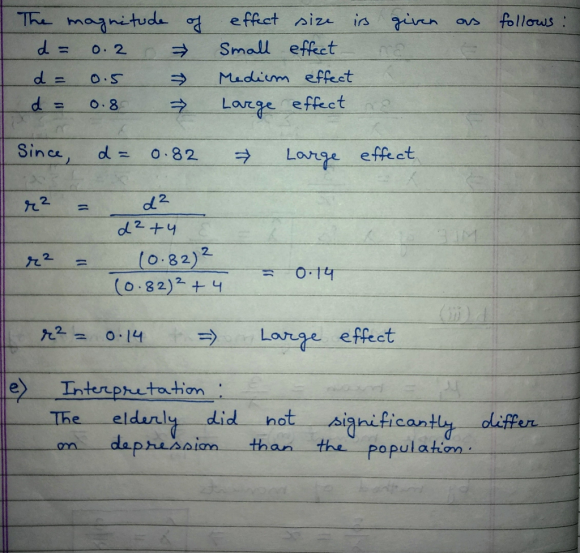 The magnitude of effect size is given as follows:
d = 0.2 ⇒ Small effect
d = 0.5 ⇒ Medium effect
d = 0.8 ⇒ Large effect
Since, d = 0.82 ⇒ Large effect
r² = d² / (d² + 4)
r² = (0.82)² / ((0.82)² + 4) = 0.14
r² = 0.14 ⇒ Large effect
e) Interpretation :
The elderly did not significantly differ
on depression than the population.